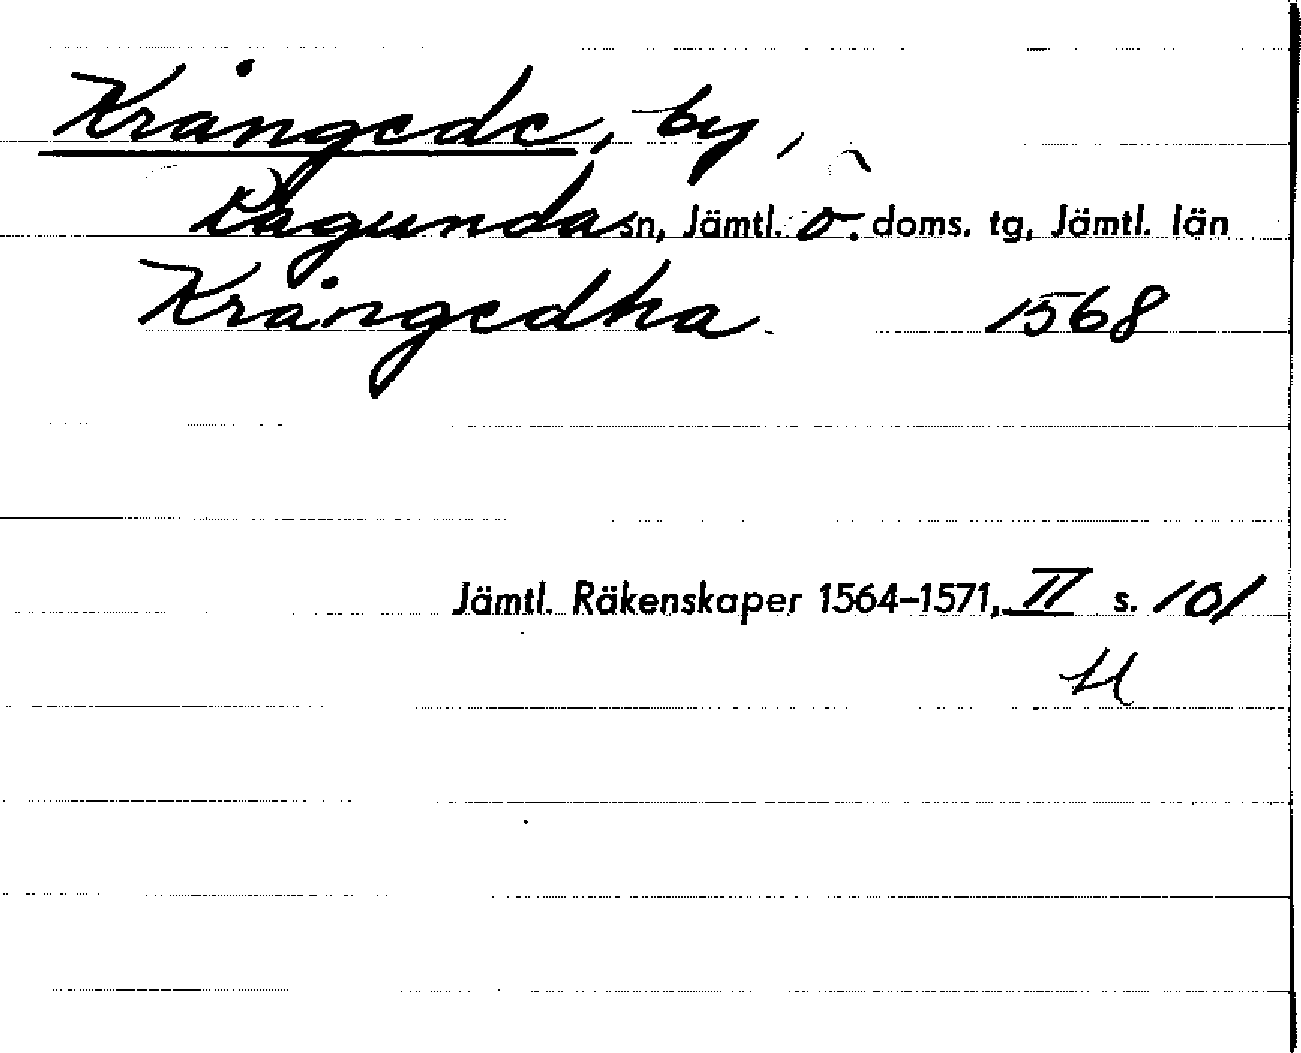 Krångede, by,
Ragunda sn, Jämtl. ö. doms. tg, Jämtl. län
Krångedha 1568
Jämtl. Räkenskaper 1564–1571, II s. 101